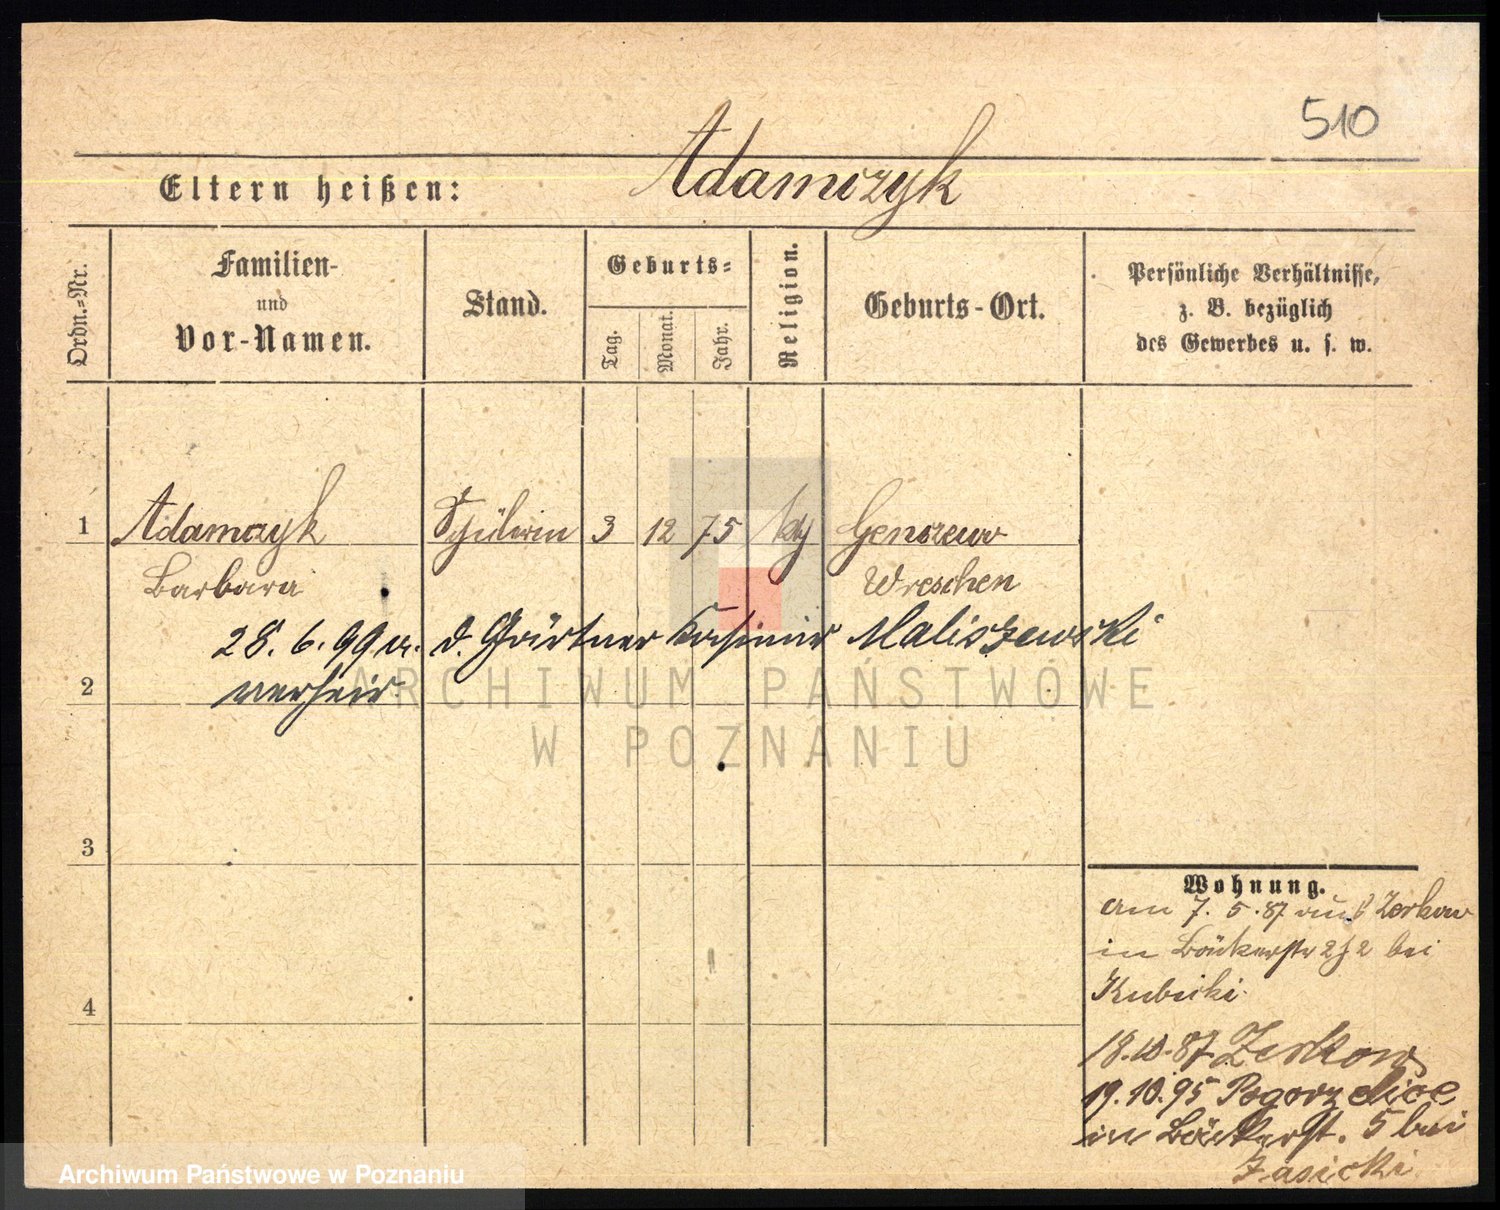 510
Eltern heißen: Adamczyk
Ordn.-Nr.
Familien-
und
Vor-Namen.
Stand.
Geburts-
Tag.
Monat.
Jahr.
Religion.
Geburts-Ort.
Persönliche Verhältnisse,
z. B. bezüglich
des Gewerbes u. s. w.
1 Adamczyk Schülerin 3 12 75 Genszew
Barbara Wreschen
28. 6. 99 d. Gärtner Kasimir Maliszewski
2 verheir.
ARCHIWUM PAŃSTWOWE
W POZNANIU
3
Wohnung.
am 7. 5. 87 aus Zerkow
in Bäckerstr bei
Kubicki
4
18.10.87 Zerkow
19.10.95 Pogorzelice
in Bäckerst. 5 bei
Jasicki
Archiwum Państwowe w Poznaniu